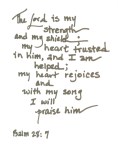 The Lord is my
strength
and my shield;
my heart trusted
in him, and I am
helped;
my heart rejoices
and
with my song
I will
praise him
Psalm 28:7